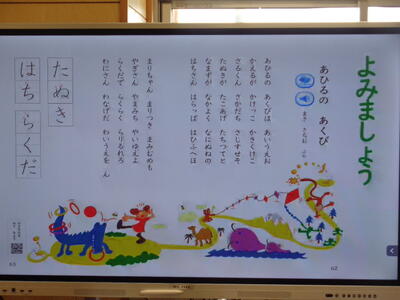 よみましょう
あひるの　あくび
まき　さちお　ぶん
あひるの　あくびは　あいうえお
かえるが　かけっこ　かきくけこ
さるくん　さかだち　さしすせそ
たぬきが　たこあげ　たちつてと
なまずが　なかよく　なにぬねの
はちさん　はらっぱ　はひふへほ
まりちゃん　まりつき　まみむめも
やぎさん　やまみち　やいゆえよ
らくだで　らくらく　らりるれろ
わにさん　わなげだ　わいうえを　ん
たぬき
らくだ
はち
62
63